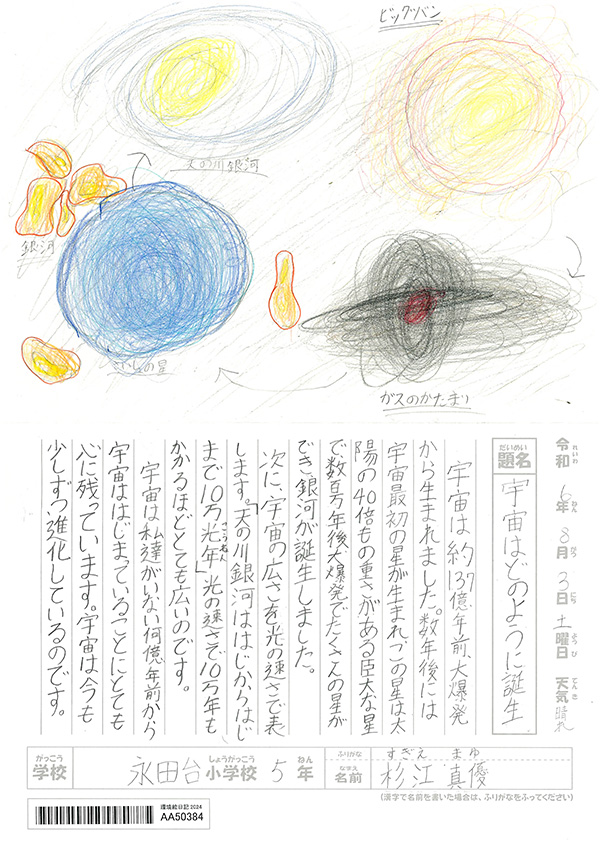 ビッグバン
天の川銀河
銀河
さいしょの星
ガスのかたまり
令和6年8月3日土曜日 天気 晴れ
れいわ ねん がつ にち ようび てんき
だいめい
題名 宇宙はどのように誕生
宇宙は約137億年前、大爆発
から生まれました。数年後には
宇宙最初の星が生まれこの星は太
陽の40倍もの重さがある臣大な星
で数百万年後大爆発でたくさんの星が
でき銀河が誕生しました。
次に、宇宙の広さを光の速さで表
します。「天の川銀河ははじからはじ
まで10万光年」光の速さで10万年も
こうねん
かかるほどとても広いのです。
宇宙は私達がいない何億年前から
宇宙ははじまっていることにとても
心に残っています。宇宙は今も
少しずつ進化しているのです。
がっこう しょうがっこう ねん
学校 永田台小学校 5年
ふりがな すぎえ まゆ
なまえ
名前 杉江 真優
(漢字で名前を書いた場合は、ふりがなをふってください)
環境絵日記2024
AA50384